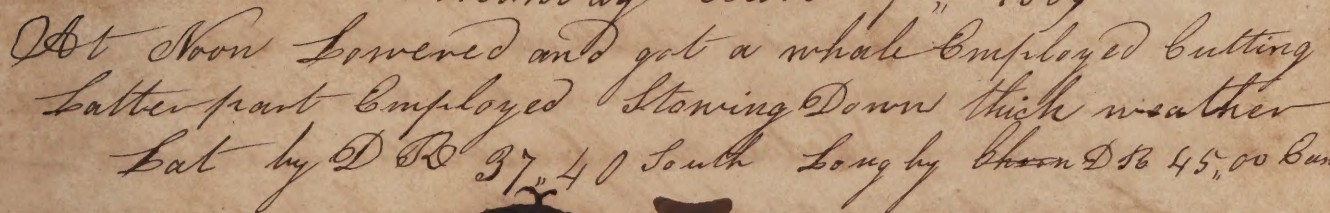 At Noon Lowered and got a whale Employed Cutting
Latter part Employed Stowing Down thick weather
Lat by D R 37,,40 South Long by Chron D R 45,,00